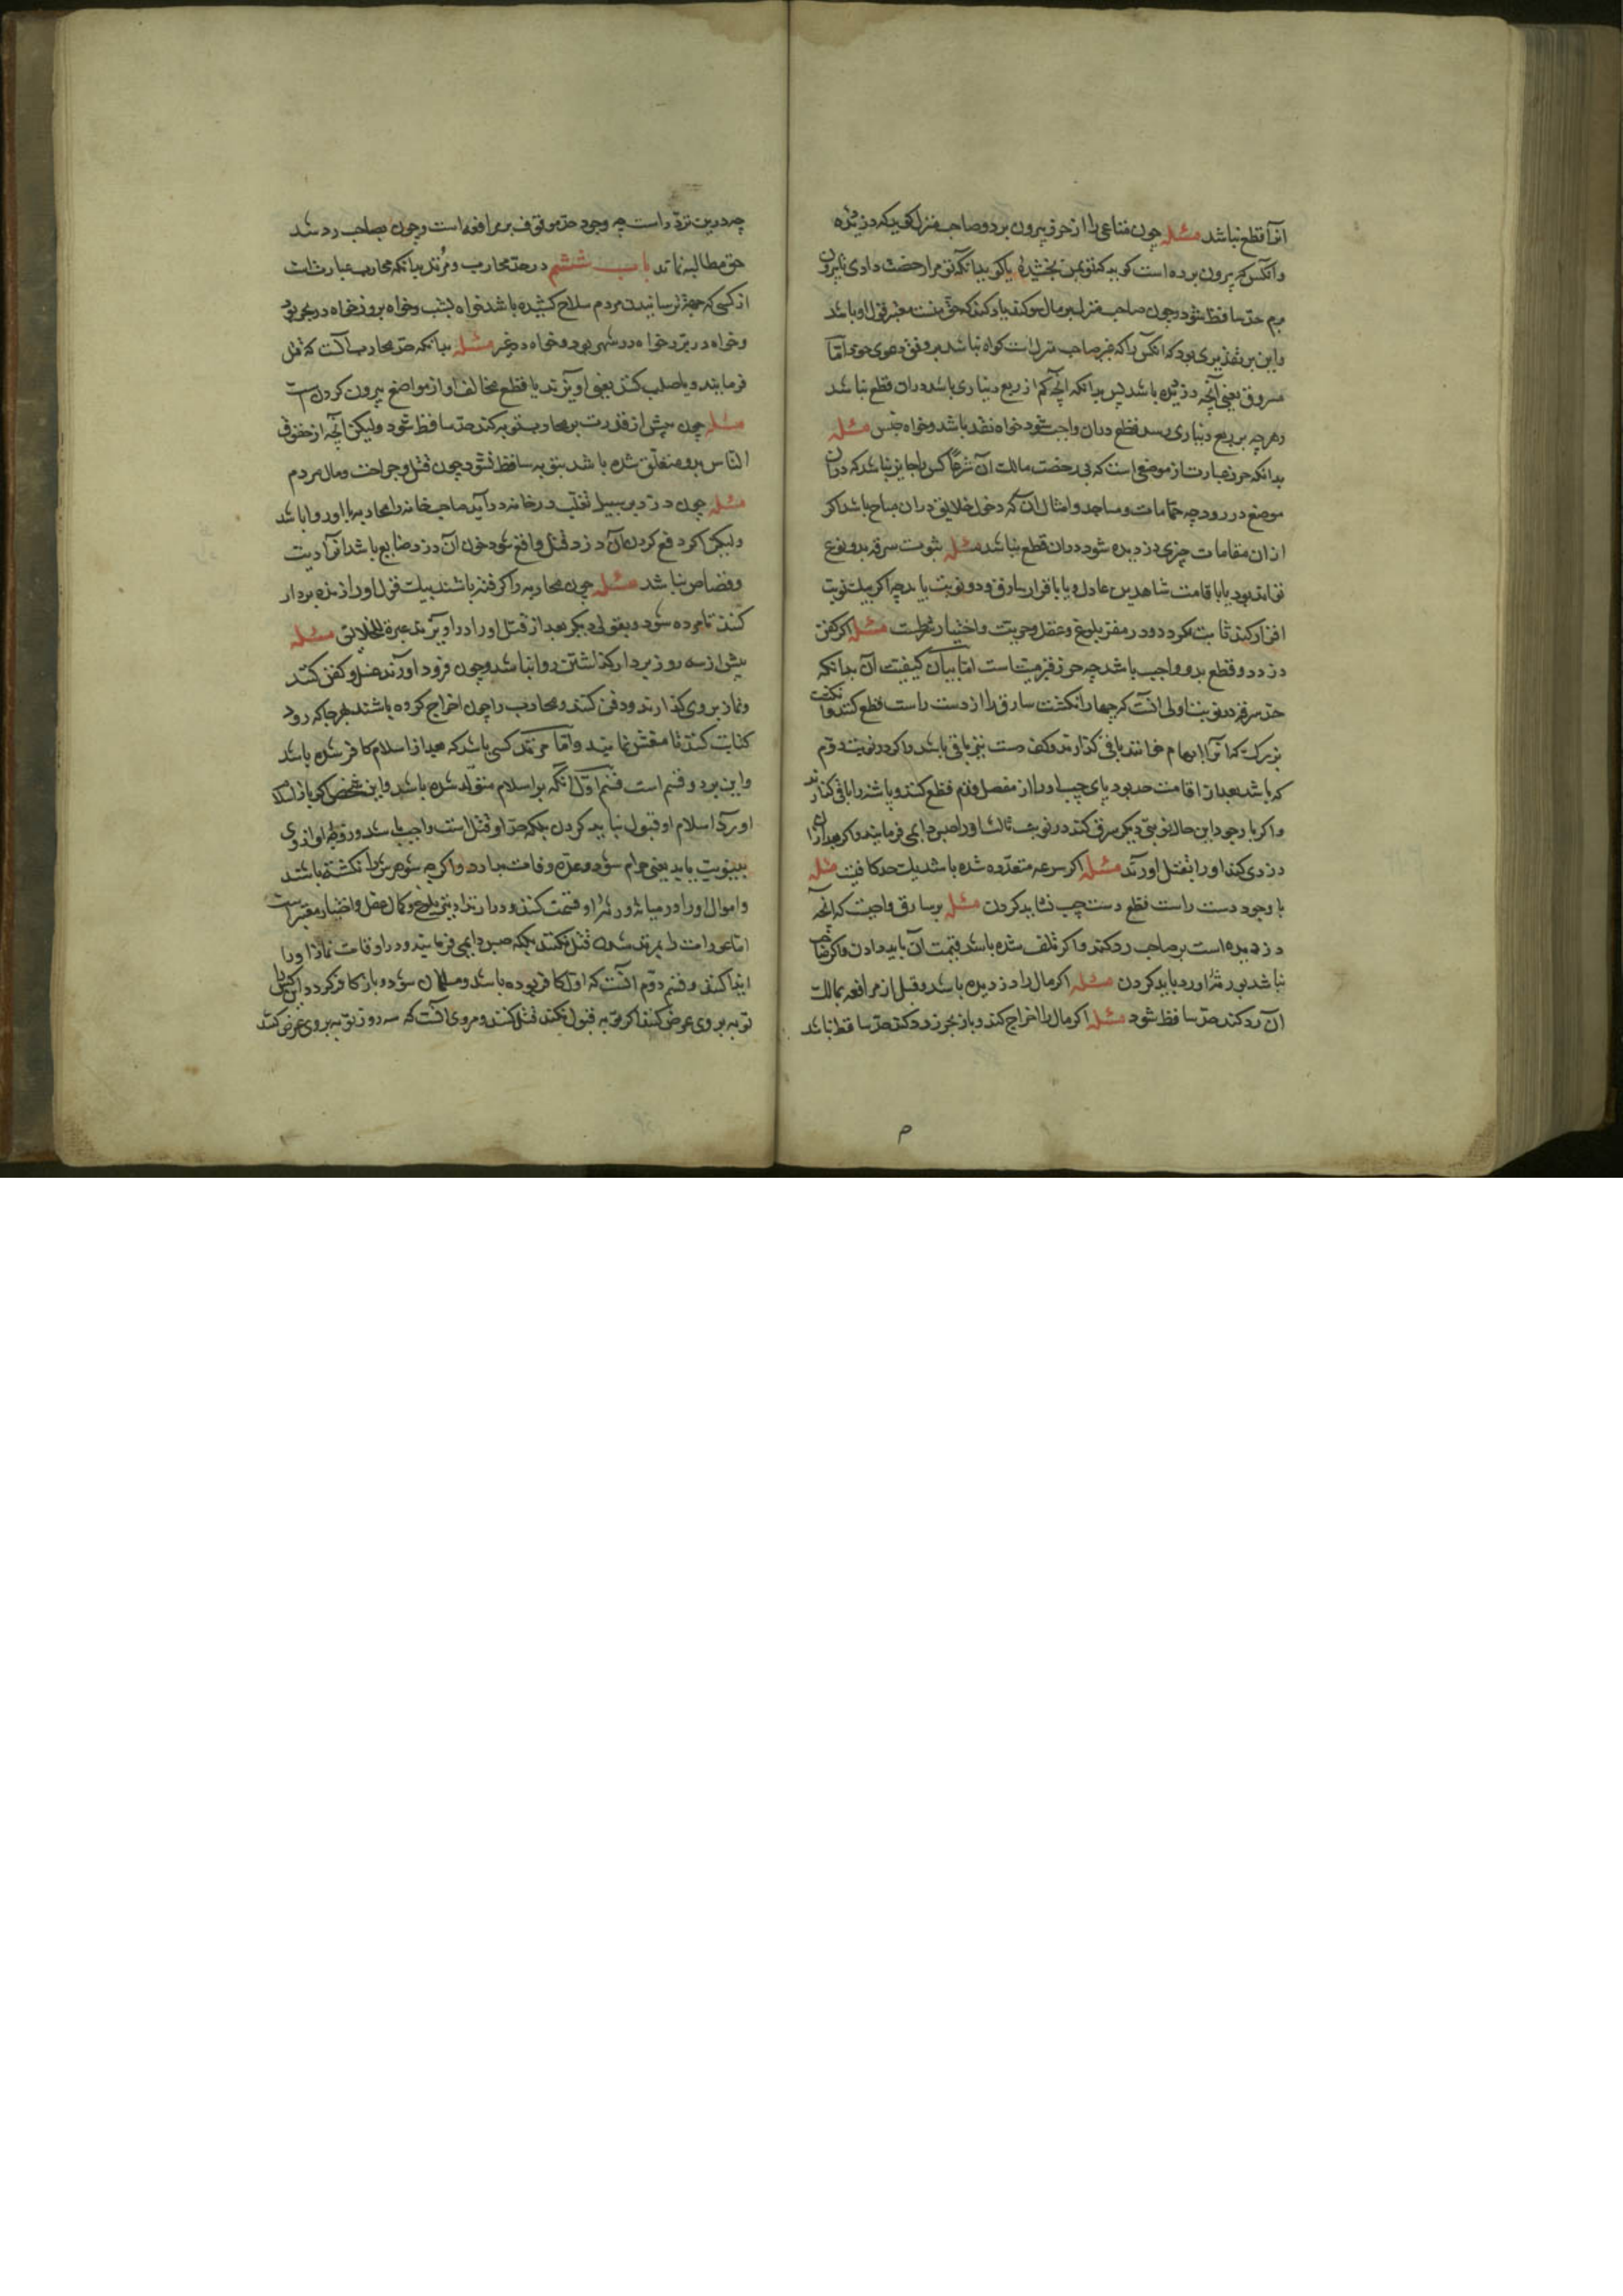 انرا قطع نباشد مسئله چون متاعی را از حرز بیرون برد و صاحب منزل گوید که دزدیده
و انکس که بیرون برده است گوید که تو بمن بخشیدهٔ یا گوید بدانکه تو مرا رخصت دادی تا بیرون
برم حد ساقط شود و چون صاحب منزل بر مال سوکند یاد کند که حق منست معتبر قول او باشد
و این بر تقدیری بود که انکس را که غیر صاحب منزل است کواه نباشد بر وفق دعوی خود اما
مسروق یعنی آنچه دزدیده باشد پس بدانکه آنچه کم از ربع دیناری باشد دران قطع نباشد
و هر چه بربع دیناری رسد قطع دران واجب شود خواه نقد باشد و خواه جنس مسئله
بدانکه حرز عبارت از موضعی است که بی رخصت مالک آن شرعاً کس را جایز نباشد که دران
موضع در رود چه حمامات و مساجد و امثال آن که دخول خلایق دران مباح باشد اکر
ازان مقامات چیزی دزدیده شود دران قطع نباشد مسئله ثبوت سرقه بدو نوع
تواند بود یا باقامت شاهدین عادل و یا باقرار سارق دو نوبت باید چه اکر یک نوبت
اقرار کند ثابت نکردد و در مقر بلوغ و عقل و حریت و اختیار شرطست مسئله اکر کفن
دزدد و قطع بدو واجب باشد چه حرز قبر میت است اما بیان کیفیت آن بدانکه
حد سرقه در نوبت اولی انست که چهار انکشت سارق را از دست راست قطع کنند و انکشت
بزرک که آنرا ابهام خوانند باقی کذارند و کف دست نیز باقی باشد و اکر در نوبت دوم
که باشد بعد از اقامت حد بود پای چپ او را از مفصل قدم قطع کنند و پاشنه را باقی کذارند
و اکر با وجود این حال نوبتی دیکر سرقه کند در نوبت ثالث او را حبس دایمی فرمایند و اکر بعد ازان
دزدی کند او را بقتل اورند مسئله اکر سرقه متعدده شده باشد یک حد کافیست مسئله
با وجود دست راست قطع دست چپ نشاید کردن مسئله بر سارق واجبست که انچه
دزدیده است بر صاحب رد کند و اکر تلف شده باشد قیمت آن باید دادن و اکر صاحب
نباشد بورثهٔ او رد باید کردن مسئله اکر مال را دزدیده باشد و قبل از مرافعه بمالک
آن رد کند حد ساقط شود مسئله اکر مال را اخراج کند و باز بحرز رد کند حد ساقط باشد
چه درین تردد است چه وجود حد موقوف بر مرافعه است و چون بصاحب رد شد
حق مطالبه نماند باب ششم در حد محارب و مرتد بدانکه محارب عبارتست
از کسی که جهة ترسانیدن مردم سلاح کشیده باشد خواه بشب و خواه بروز خواه در بحر بود
و خواه در بر و خواه در شهر بود و خواه در غیر مسئله بدانکه حد محارب آنست که قتل
فرمایند و یا صلب کنند یعنی اویزند یا قطع مخالف او از مواضع بیرون کردن است
مسئله چون پیش از قدرت بر محارب توبه کند حد ساقط شود ولیکن آنچه از حقوق
الناس برو متعلق شده باشد بتوبه ساقط نشود چون قتل و جراحت و مال مردم
مسئله چون دزد بر سبیل تغلب در خانه درآید صاحب خانه را محاربه با او روا باشد
ولیکن اکر دفع کردن آن دزد قتل واقع شود خون آن دزد ضایع باشد انرا دیت
و قصاص نباشد مسئله چون محاربه را کرفته باشند بیک قول او را زنده بردار
کنند تا مرده شود و بقولی دیکر بعد از قتل او را دراویزند عبرة للخلائق مسئله
بیش از سه روز بر دار کذاشتن روا نباشد و چون فرود اورند غسل و کفن کنند
و نماز بر وی کذارند و دفن کنند و محارب را چون اخراج کرده باشند بهر جا که رود
کتابت کنند تا منعش نمایند و اما مرتد کسی باشد که بعد از اسلام کافر شده باشد
و این بر دو قسم است قسم اول آنکه بر اسلام متولد شده باشد و این شخص اکر باز اسلام
اورد اسلام او قبول نباید کردن بلکه حد او قتل است واجب باشد و زوجه او از وی
ببینونیت باید یعنی حرام شود و عده وفات بدارد و اکر چه شوهرش را نکشته باشند
و اموال او را در میانه ورثهٔ او قسمت کنند و در ارتداد نیز بلوغ و کمال عقل و اختیار معتبر است
اما عورات را بمرتد شدن قتل نکنند بلکه حبس دایمی فرمایند و در اوقات نماز او را
ایذا کنند و قسم دوم انست که اول کافر بوده باشد و مسلمان شود و باز کافر کردد این کس را
توبه بر وی عرض کنند اکر توبه قبول نکند قتل کنند و مروی آنست که سه روز توبه بر وی عرض کنند
م